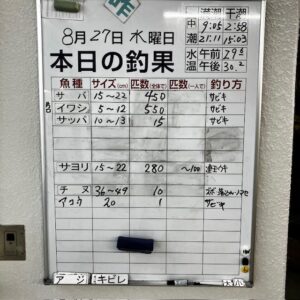 昨
8月27日 水曜日
本日の釣果
満潮 干潮
中 9:05 2:58
潮 21:11 15:03
水 午前 29.8
温 午後 30.2
魚種 サイズ(cm) 匹数(全体で) 匹数(一人で) 釣り方
サバ 15~22 450 サビキ
イワシ 5~12 550 サビキ
サッパ 10~13 15 サビキ
サヨリ 15~22 280 ~100
チヌ 36~49 10
アコウ 20 1 サビキ
アジ キビレ